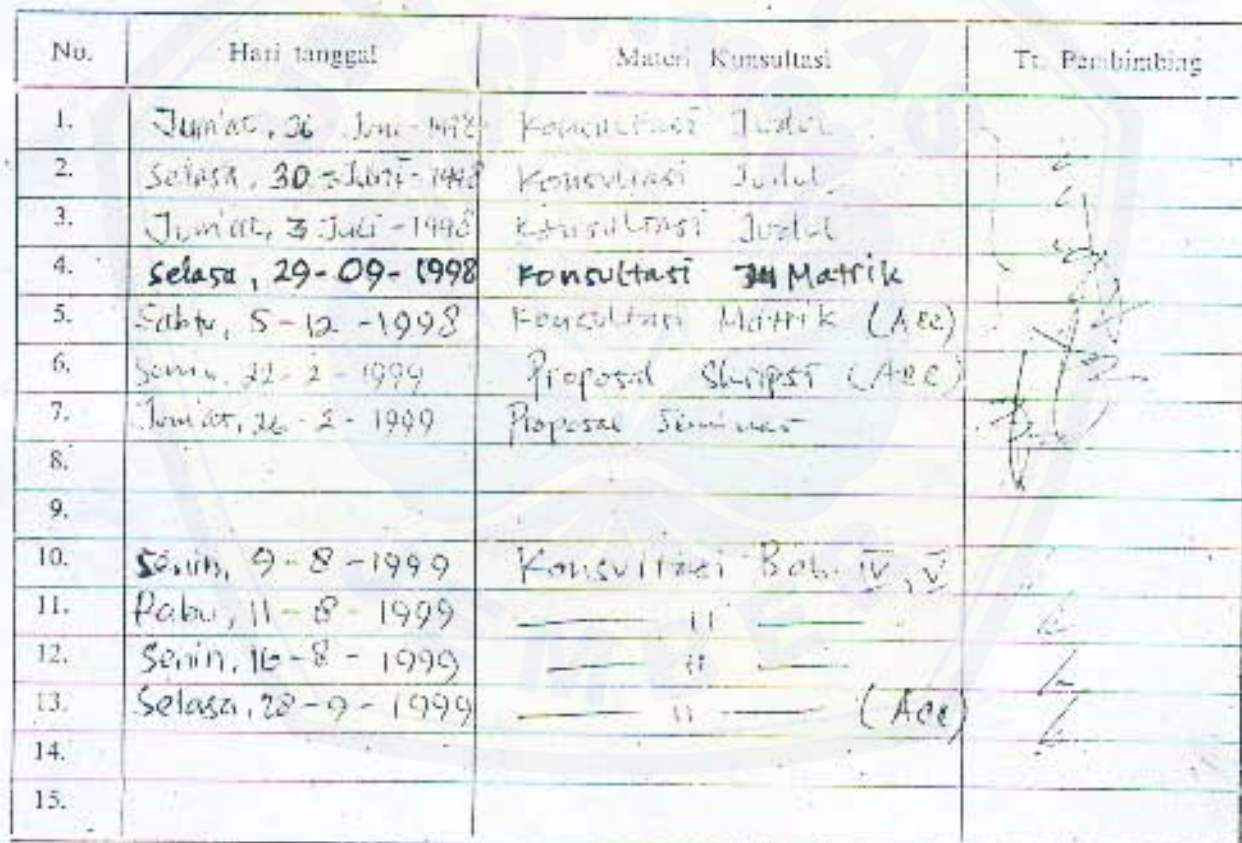 No. Hari tanggal Materi Konsultasi Tt. Pembimbing
1. Jum'at, 26 Juni-1998 Konsultasi Judul
2. Selasa, 30-Juni-1998 Konsultasi Judul
3. Jum'at, 3 Juli-1998 Konsultasi Judul
4. Selasa, 29-09-1998 Konsultasi Matrik
5. Sabtu, 5-12-1998 Konsultasi Matrik (Acc)
6. Senin, 22-2-1999 Proposal Skripsi (Acc)
7. Jum'at, 26-2-1999 Proposal Seminar
8.
9.
10. Senin, 9-8-1999 Konsultasi Bab. IV, V
11. Rabu, 11-8-1999 — 11 —
12. Senin, 16-8-1999 — 11 —
13. Selasa, 28-9-1999 — 11 — (Acc)
14.
15.